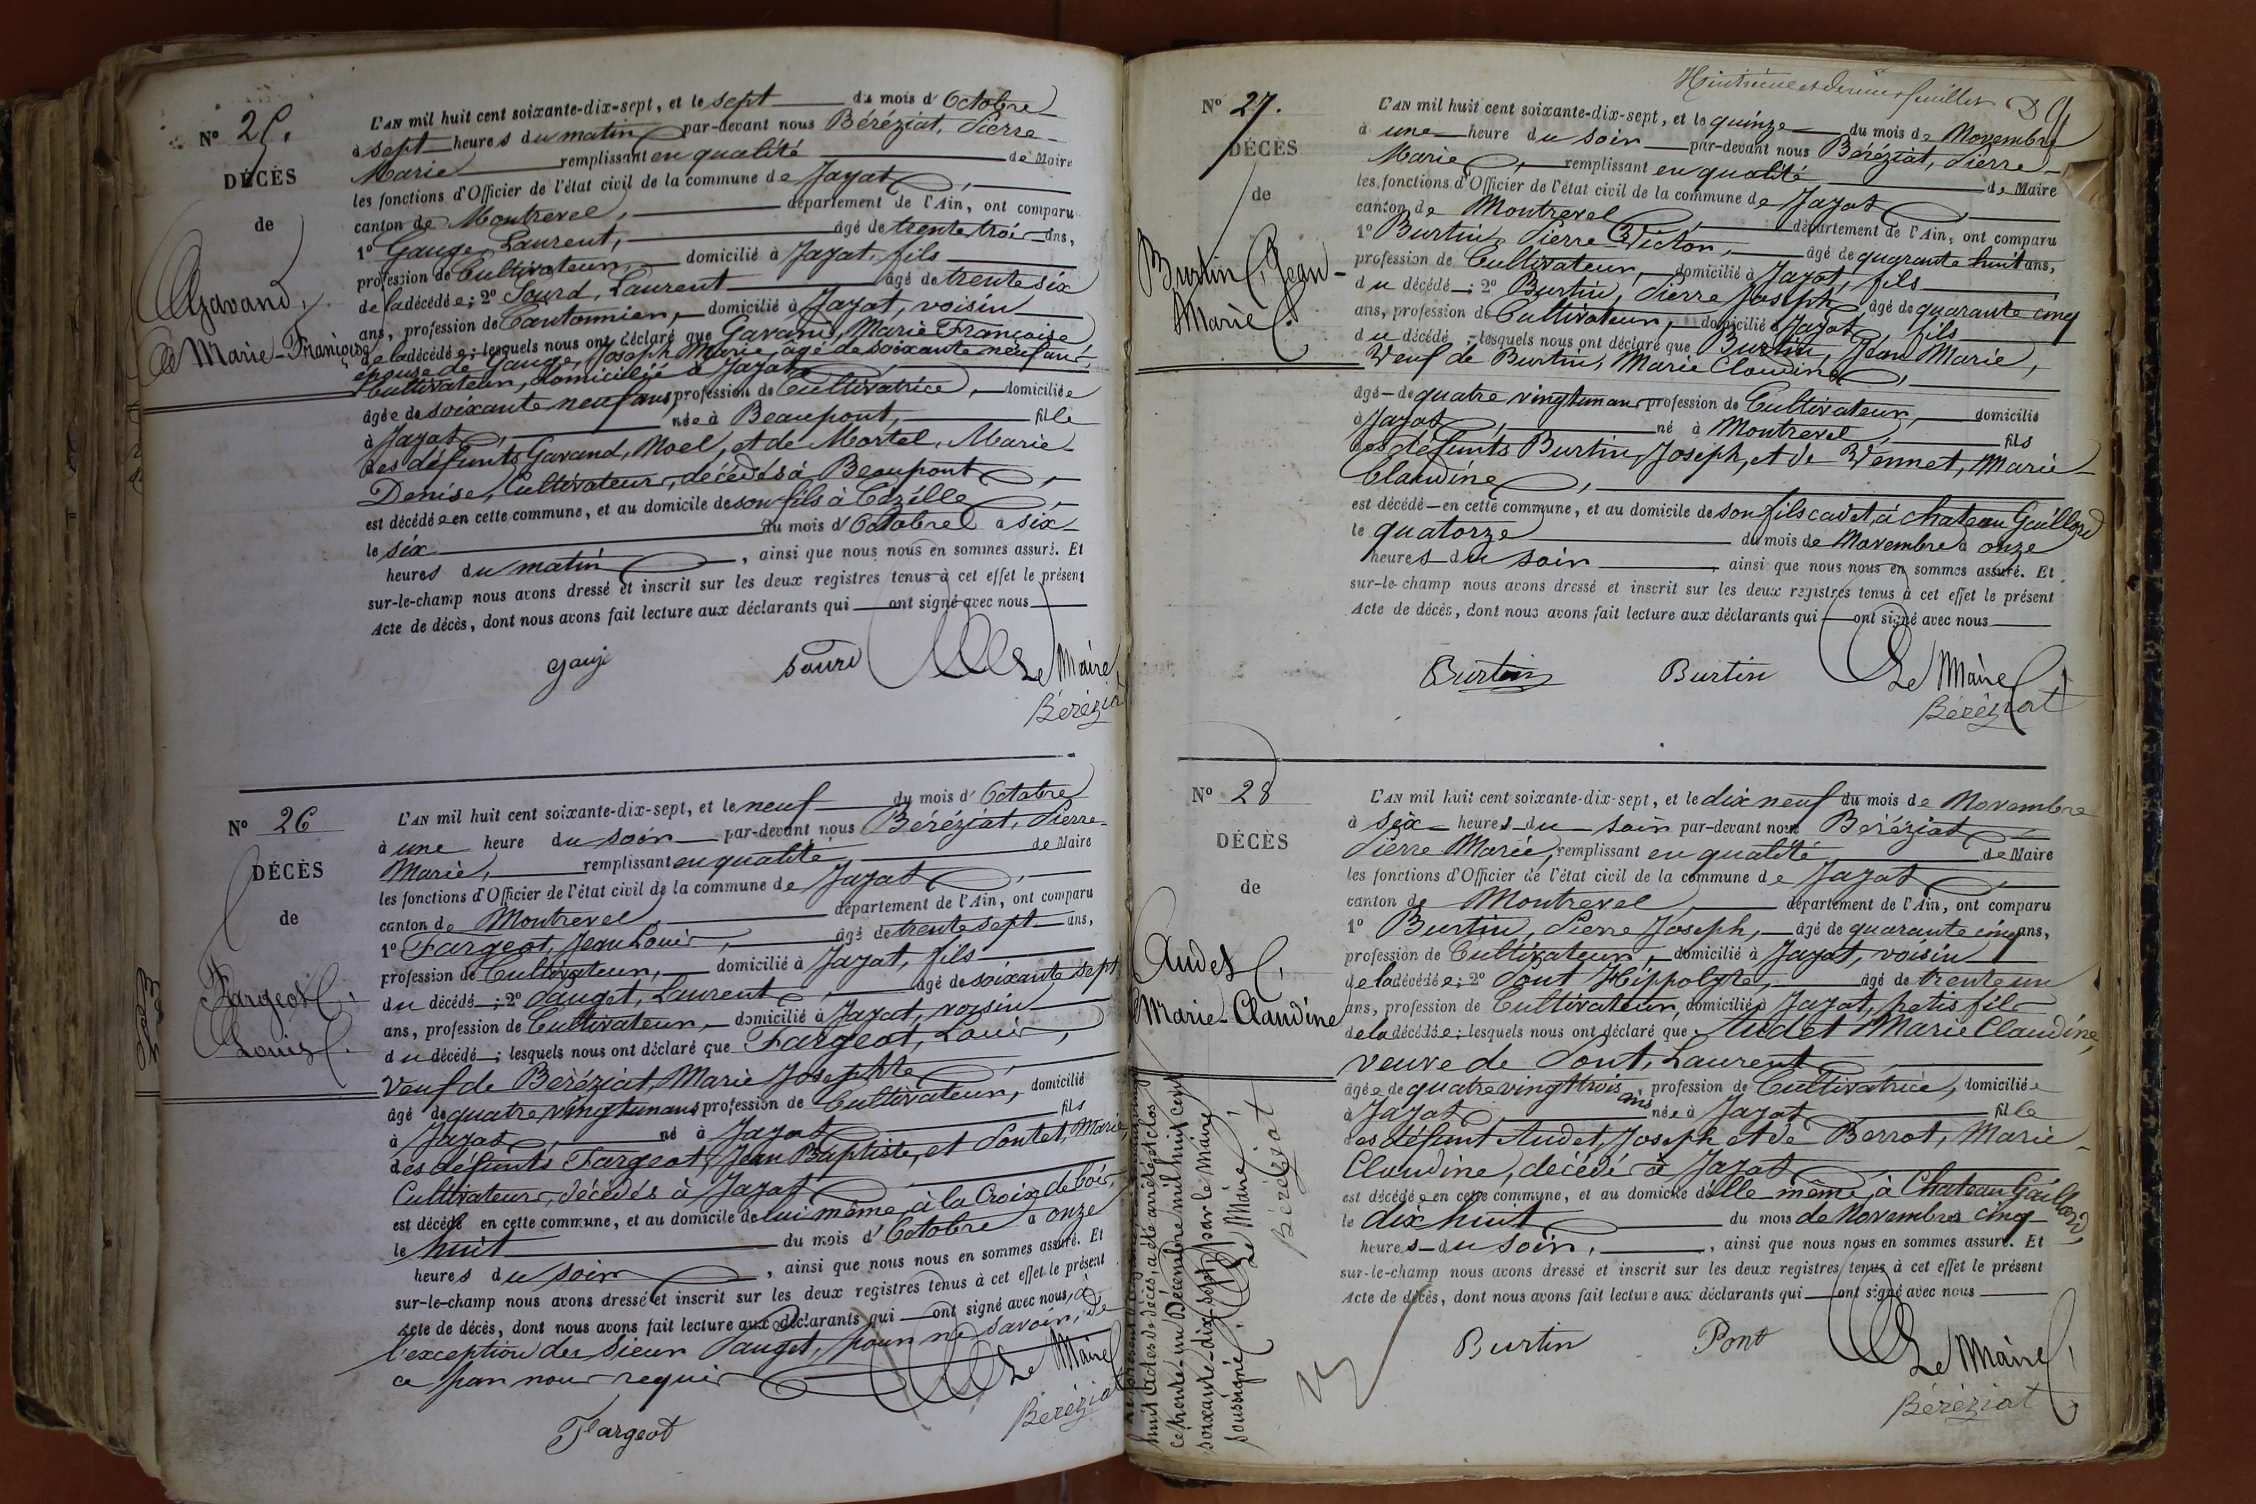 Nº 25.
DÉCÈS
de
Gavand,
Marie-Françoise
L'AN mil huit cent soixante-dix-sept, et le sept du mois d'Octobre
à sept heures du matin par-devant nous Béréziat, Pierre
Marie remplissant en qualité de Maire
les fonctions d'Officier de l'état civil de la commune de Jayat,
canton de Montrevel, département de l'Ain, ont comparu
1º Gauge, Laurent, âgé de trente trois ans,
profession de Cultivateur, domicilié à Jayat, fils
de la décédée; 2º Sourd, Laurent âgé de trente six
ans, profession de Cantonnier, domicilié à Jayat, voisin
de la décédée; lesquels nous ont déclaré que Gavand, Marie Françoise
épouse de Gauge, Joseph Marie, âgé de soixante neuf ans,
Cultivateur, domicilié à Jayat,
âgée de soixante neuf ans profession de Cultivatrice, domiciliée
à Jayat, née à Beaupont, fille
des défunts Gavand, Noel, et de Mortel, Marie
Denise, Cultivateurs, décédés à Beaupont,
est décédée en cette commune, et au domicile de son fils à Cézille
le six du mois d'Octobre à six
heures du matin, ainsi que nous nous en sommes assuré. Et
sur-le-champ nous avons dressé et inscrit sur les deux registres tenus à cet effet le présent
Acte de décès, dont nous avons fait lecture aux déclarants qui ont signé avec nous
gauge Sourd Le Maire
Béréziat
Nº 26
DÉCÈS
de
Fargeot,
Louis.
L'AN mil huit cent soixante-dix-sept, et le neuf du mois d'Octobre
à une heure du soir par-devant nous Béréziat, Pierre-
Marie, remplissant en qualité de Maire
les fonctions d'Officier de l'état civil de la commune de Jayat,
canton de Montrevel, département de l'Ain, ont comparu
1º Fargeot, Jean Louis, âgé de trente sept ans,
profession de Cultivateur, domicilié à Jayat, fils
du décédé; 2º Pauget, Laurent, âgé de soixante sept
ans, profession de Cultivateur, domicilié à Jayat, voisin
du décédé; lesquels nous ont déclaré que Fargeot, Louis,
Veuf de Béréziat, Marie Josephte
âgé de quatre vingt un ans profession de Cultivateur, domicilié
à Jayat, né à Jayat fils
des défunts Fargeot, Jean Baptiste, et Pontet, Marie,
Cultivateurs, décédés à Jayat
est décédé en cette commune, et au domicile de lui même, à la Croix de bois,
le huit du mois d'Octobre à onze
heures du soir, ainsi que nous nous en sommes assuré. Et
sur-le-champ nous avons dressé et inscrit sur les deux registres tenus à cet effet le présent
Acte de décès, dont nous avons fait lecture aux déclarants qui ont signé avec nous, à
l'exception du sieur Pauget, pour ne savoir, de
ce par nous requis
Le Maire
Béréziat
Fargeot
Huitième et dernier feuillet
Nº 27.
DÉCÈS
de
Burtin, Jean-
Marie.
L'AN mil huit cent soixante-dix-sept, et le quinze du mois de Novembre
à une heure du soir par-devant nous Béréziat, Pierre-
Marie, remplissant en qualité de Maire
les fonctions d'Officier de l'état civil de la commune de Jayat,
canton de Montrevel, département de l'Ain, ont comparu
1º Burtin, Pierre Victor, âgé de quarante huit ans,
profession de Cultivateur, domicilié à Jayat, fils
du décédé; 2º Burtin, Pierre Joseph, âgé de quarante cinq
ans, profession de Cultivateur, domicilié à Jayat, fils
du décédé; lesquels nous ont déclaré que Burtin, Jean Marie,
Veuf de Burtin, Marie Claudine,
âgé de quatre vingt un ans profession de Cultivateur, domicilié
à Jayat, né à Montrevel, fils
des défunts Burtin, Joseph, et de Vennet, Marie
Claudine,
est décédé en cette commune, et au domicile de son fils cadet, à Chateau Gaillard
le quatorze du mois de Novembre à onze
heures du soir, ainsi que nous nous en sommes assuré. Et
sur-le-champ nous avons dressé et inscrit sur les deux registres tenus à cet effet le présent
Acte de décès, dont nous avons fait lecture aux déclarants qui ont signé avec nous
Burtin Burtin Le Maire
Béréziat
Nº 28
DÉCÈS
de
Audet,
Marie-Claudine
L'AN mil huit cent soixante-dix-sept, et le dix neuf du mois de Novembre
à six heures du soir par-devant nous Béréziat
Pierre Marie, remplissant en qualité de Maire
les fonctions d'Officier de l'état civil de la commune de Jayat,
canton de Montrevel, département de l'Ain, ont comparu
1º Burtin, Pierre Joseph, âgé de quarante cinq ans,
profession de Cultivateur, domicilié à Jayat, voisin
de la décédée; 2º Pont Hippolyte, âgé de trente un
ans, profession de Cultivateur, domicilié à Jayat, petit fils
de la décédée; lesquels nous ont déclaré que Audet Marie Claudine,
veuve de Pont, Laurent,
âgée de quatre vingt trois ans, profession de Cultivatrice, domiciliée
à Jayat, née à Jayat fille
des défunt Audet, Joseph et de Berrot, Marie-
Claudine, décédé à Jayat
est décédée en cette commune, et au domicile d'elle même, à Chateau Gaillard,
le dix huit du mois de Novembre cinq
heures du soir, ainsi que nous nous en sommes assuré. Et
sur-le-champ nous avons dressé et inscrit sur les deux registres tenus à cet effet le présent
Acte de décès, dont nous avons fait lecture aux déclarants qui ont signé avec nous
Burtin Pont Le Maire
Béréziat
huit actes de décès, a été arrêté & clos
ce trente-un Décembre mil huit cent
soixante-dix-sept, par le Maire
soussigné. Le Maire
Béréziat